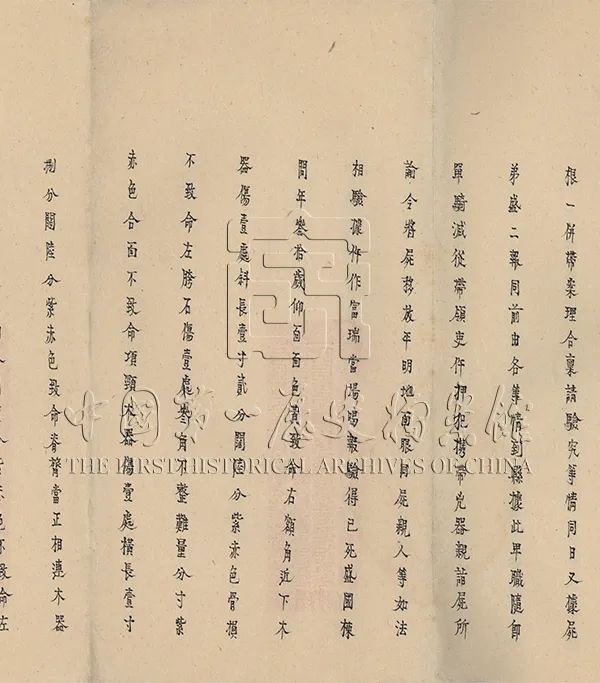 根一併帶案理合稟請驗究等情同日又據屍
弟盛二報同前由各等情到縣據此卑職隨即
單騎減從帶領吏仵押犯攜帶兇器親詣屍所
諭令將屍移放平明地面眼同屍親人等如法
相驗據仵作富瑞當場喝報驗得已死盛國棟
問年叁拾歲仰面面色黃致命右額角近下木
器傷壹處斜長壹寸貳分闊陸分紫赤色骨損
不致命左胯石傷壹處叁角不整難量分寸紫
赤色合面不致命項頸木器傷壹處橫長壹寸
捌分闊陸分紫赤色致命脊膂當正相連木器
赤色不致命左
中国第一历史档案馆
THE FIRST HISTORICAL ARCHIVES OF CHINA